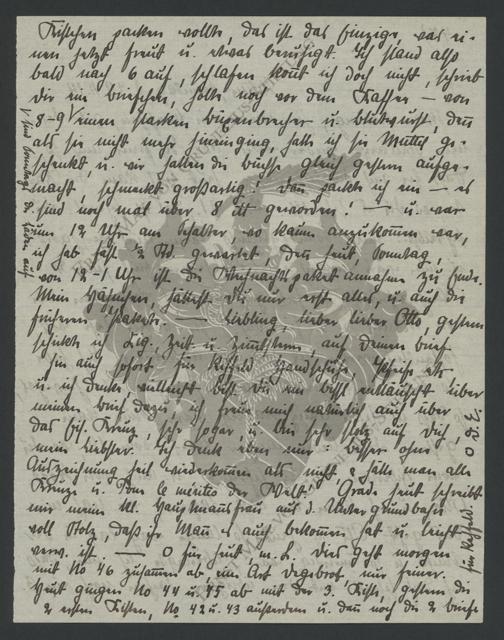 Kistchen packen wollte, das ist das Einzige, was ei-
nen jetzt freut u. etwas beruhigt. Ich stand also
bald nach 6 auf, schlafen konnt ich doch nicht, schrieb
Dir ein Briefchen, holte noch vor dem Kaffee — von
8-9 einen starken u. Blutwurst, den
als sie nicht mehr hineinging, hatte ich sie Muttel ge-
schenkt, u. wir hatten die Büchse gleich gestern aufge-
macht, schmeckt großartig! Dann packte ich ein — es
sind noch mal über 8 ℔ geworden! — u. war
um 12 Uhr am Schalter, wo kaum anzukommen war,
ich hab fast ½ Std. gewartet denn heut, Sonntag,
von 12-1 Uhr ist die Weihnachtspaketannahme zu Ende.
Mein Hähnchen, hättest Du nur erst alles, u. auch die
früheren Pakete. — Liebling, lieber lieber Otto, gestern
schickte ich Zig. Zeit u. auf Deinen Brief
hin auch sofort für Handschuhe, Seife etc
u. ich denke vielleicht bist Du ein bissl enttäuscht über
meinen Brief dazu, ich freue mich natürlich auch über
das Eis. Kreuz, sehr sogar u. bin sehr stolz auf Dich,
mein Liebster. Ich denk eben nur: besser ohne
Auszeichnung heil wiederkommen als nicht u. hätte man alle
Kreuze u. Pour le mérite der Welt! Grad heut schreibt
mir meine kl. Hauptmannsfrau aus d. Untergrundbahn
voll Stolz, daß ihr Mann es auch bekommen hat u. leicht
verw. ist. — O für heut, m. L. Dies geht morgen
mit No 46 zusammen ab, ein Art, nur feiner.
Heut gingen No 44 u. 45 ab mit der 3. Kiste, gestern die
2 ersten Kisten, No. 42 u. 43 außerdem u. dann noch die 2 Briefe
für
O D. E.
sind Sonntags die Läden auf